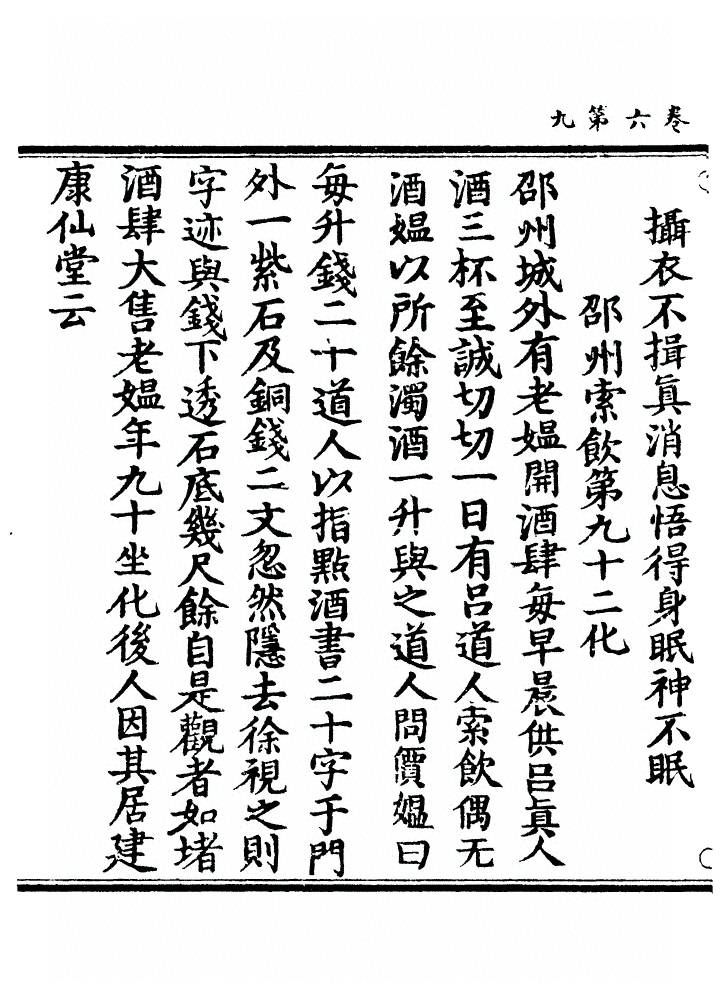 卷六第九
攝衣不揖眞消息悟得身眠神不眠
邵州索飲第九十二化
邵州城外有老媼開酒肆每早晨供呂眞人
酒三杯至誠切切一日有呂道人索飲偶无
酒媼以所餘濁酒一升與之道人問價媼曰
每升錢二十道人以指點酒書二十字于門
外一紫石及銅錢二文忽然隱去徐視之則
字迹與錢下透石底幾尺餘自是觀者如堵
酒肆大售老媼年九十坐化後人因其居建
康仙堂云